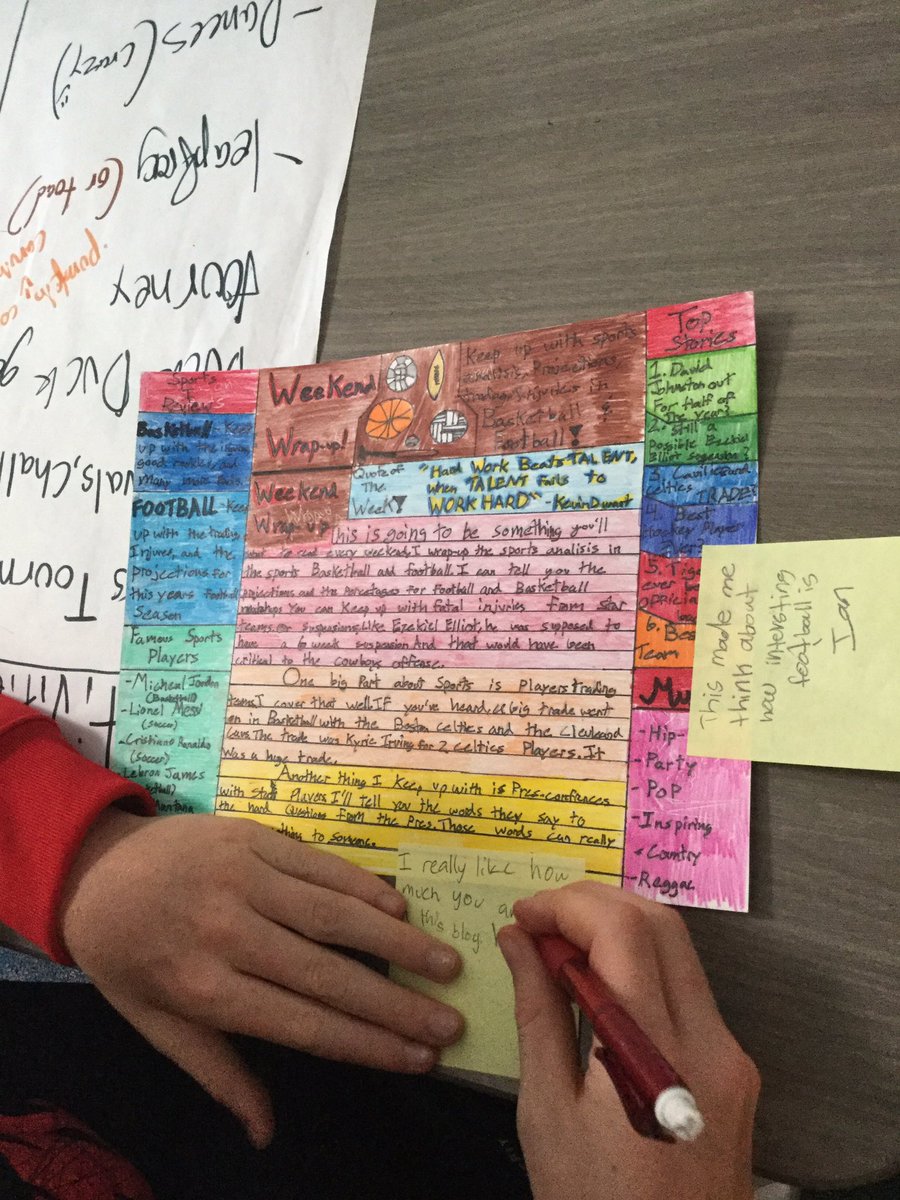 - Dances (crazy)
:)
- leapfrog (or toad)
Tourney
Duck
Sports
Reviews
Basketball - Keep
up with the
good rookies, and
many more
FOOTBALL - Keep
up with the trading
Injures, and the
projections for
this years football
Season
Famous Sports
Players
- Micheal Jordan
(Basketball)
- Lionel Messi
(soccer)
- Cristiano Ronaldo
(soccer)
- Lebron James
Weekend
Wrap-up!
Keep up with sports
analysis, Projections
injuries in
Basketball &
Football!
Weekend
Wrap-up
Quote of
The
Week!
"Hard Work Beats TALENT,
when TALENT Fails to
WORK HARD" - Kevin Durant
This is going to be something you'll
want to read every weekend, I wrap-up the sports analisis in
the sports Basketball and football. I can tell you the
projections and the percentages for football and Basketball
matchups. You can keep up with fatal injuries from star
teams. or suspensions, Like Ezekiel Elliot, he was supposed to
have a 6 week suspension. And that would have been
critical to the cowboys offense.
One big part about Sports is Players trading
teams. I cover that well. If you've heard, a big trade went
on in Basketball with the Boston celtics and the Cleveland
Cavs. The trade was Kyrie Irving for 2 celtics Players. It
was a huge trade.
Another thing I keep up with is Pres-confences
with star players I'll tell you the words they say to
the hard questions from the Pres. Those words can really
thing to someone.
Top
Stories
1. David
Johnston out
for half of
The year?
2. Still a
possible Ezekiel
Elliot Suspension?
3. Cavs
celtics TRADE?
4. Best
Player
Ever?
5.
ever
6. Bes
Team
Mu
- Hip-
- Party
- Pop
- Inspiring
- Country
- Reggae
This made me
think about
how intersting
football is
Ian
I really like how
much you a
this blog.